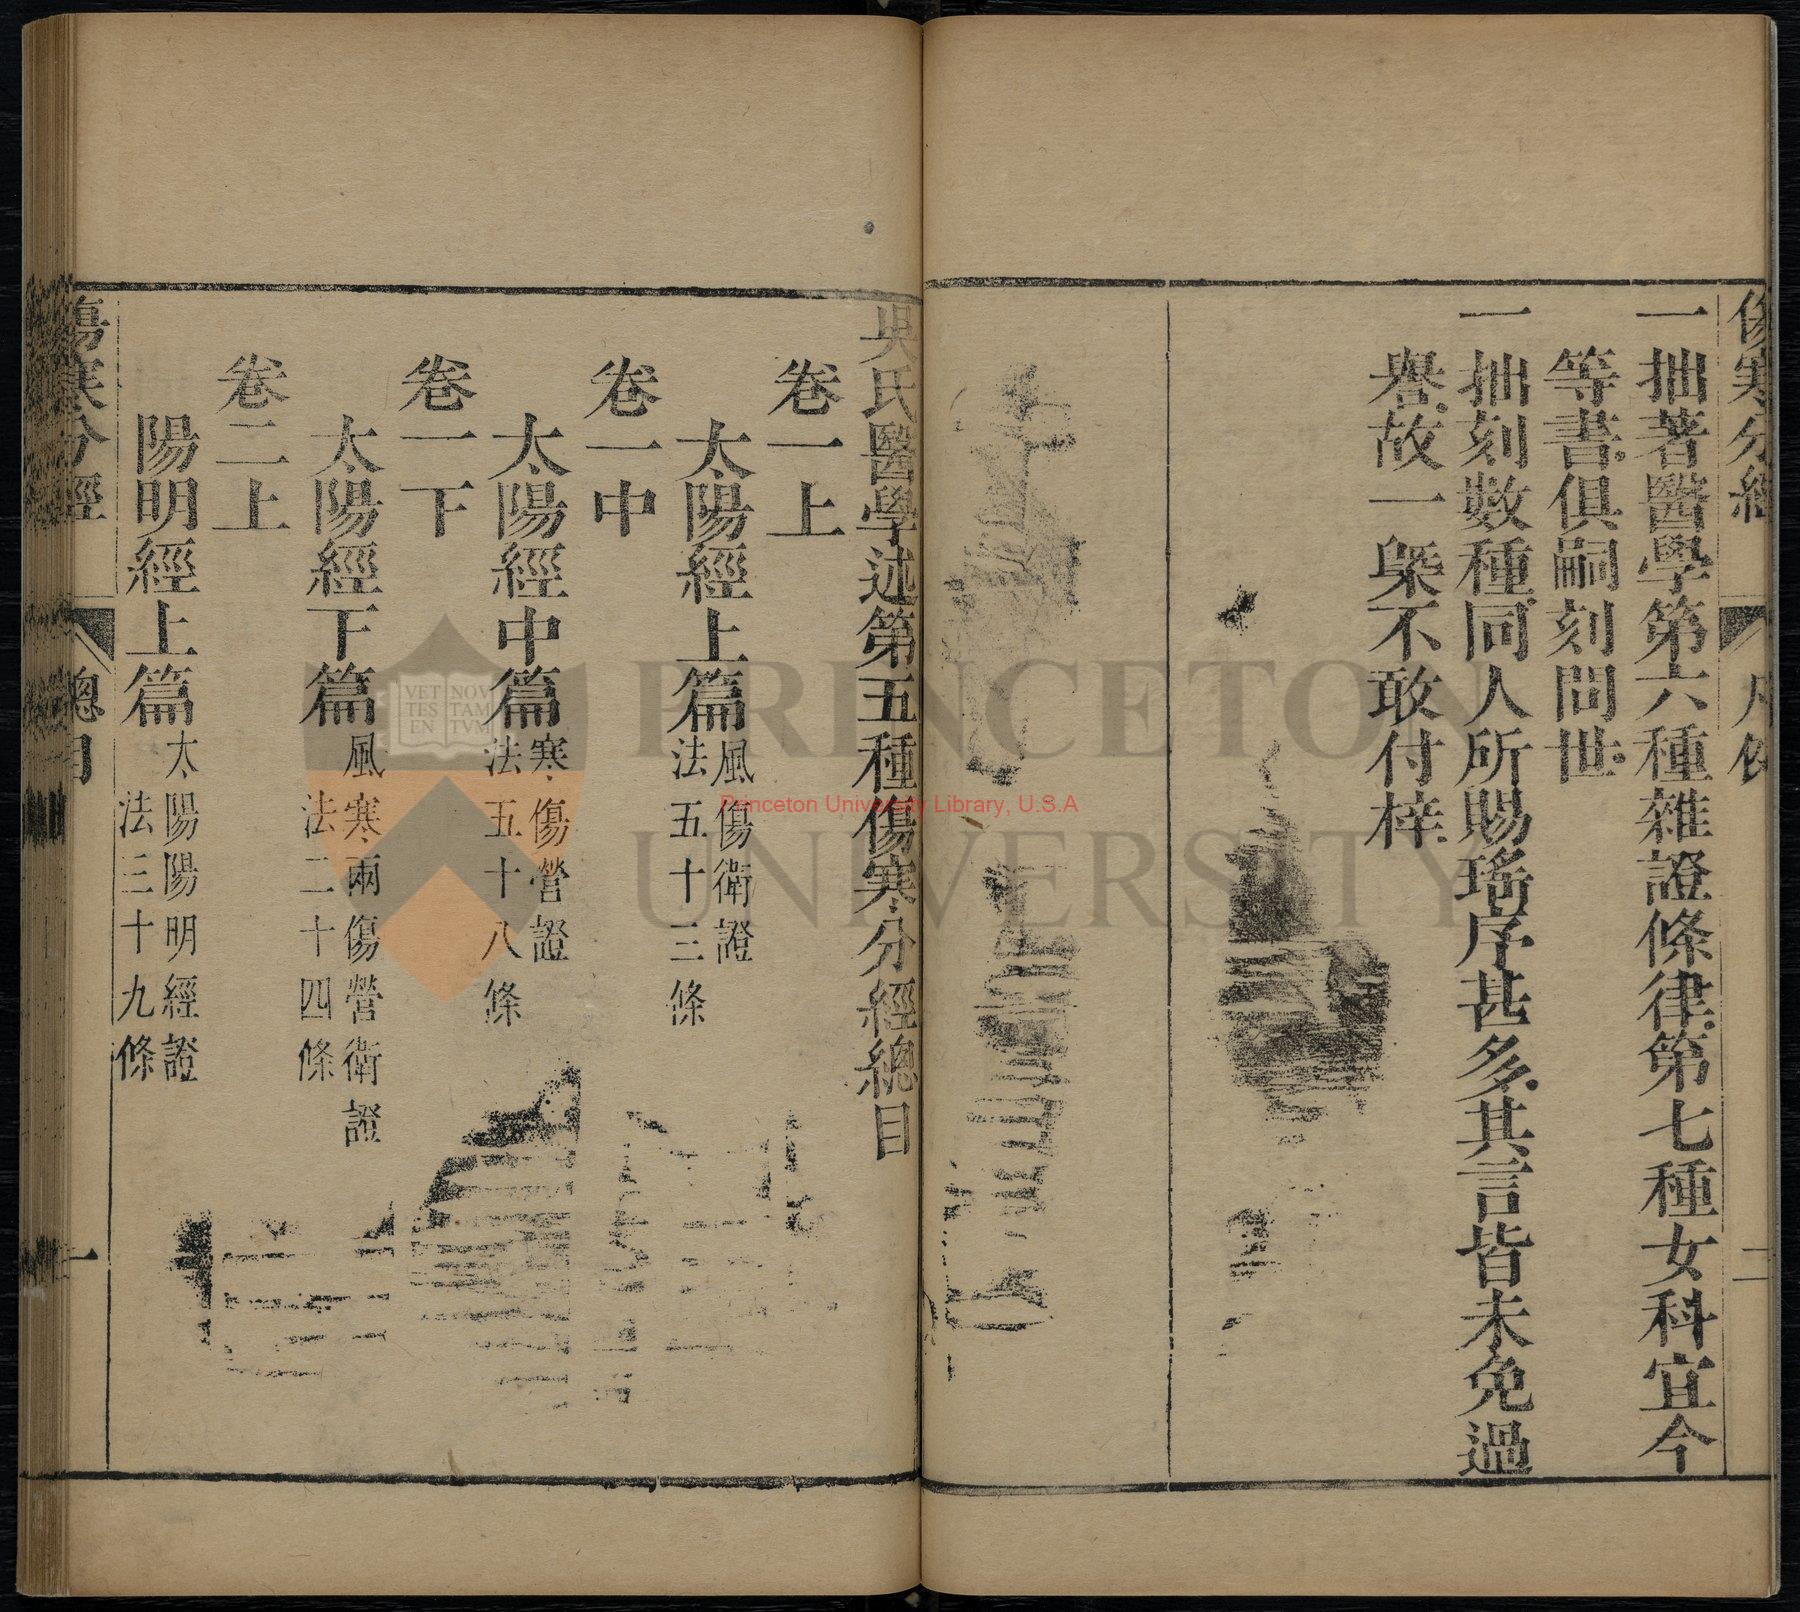 傷寒分經 凡例 二
一拙著醫學第六種雜證條律第七種女科宜今
等書俱嗣刻問世
一拙刻數種同人所賜瑤序甚多其言皆未免過
譽故一槩不敢付梓
吳氏醫學述第五種傷寒分經總目
卷一上
太陽經上篇 風傷衛證
法五十三條
卷一中
太陽經中篇 寒傷營證
法五十八條
卷一下
太陽經下篇 風寒兩傷營衛證
法二十四條
卷二上
陽明經上篇 太陽陽明經證
法三十九條
傷寒分經 總目 一
PRINCETON
UNIVERSITY
VET NOV
TES TAM
EN TVM
Princeton University Library, U.S.A